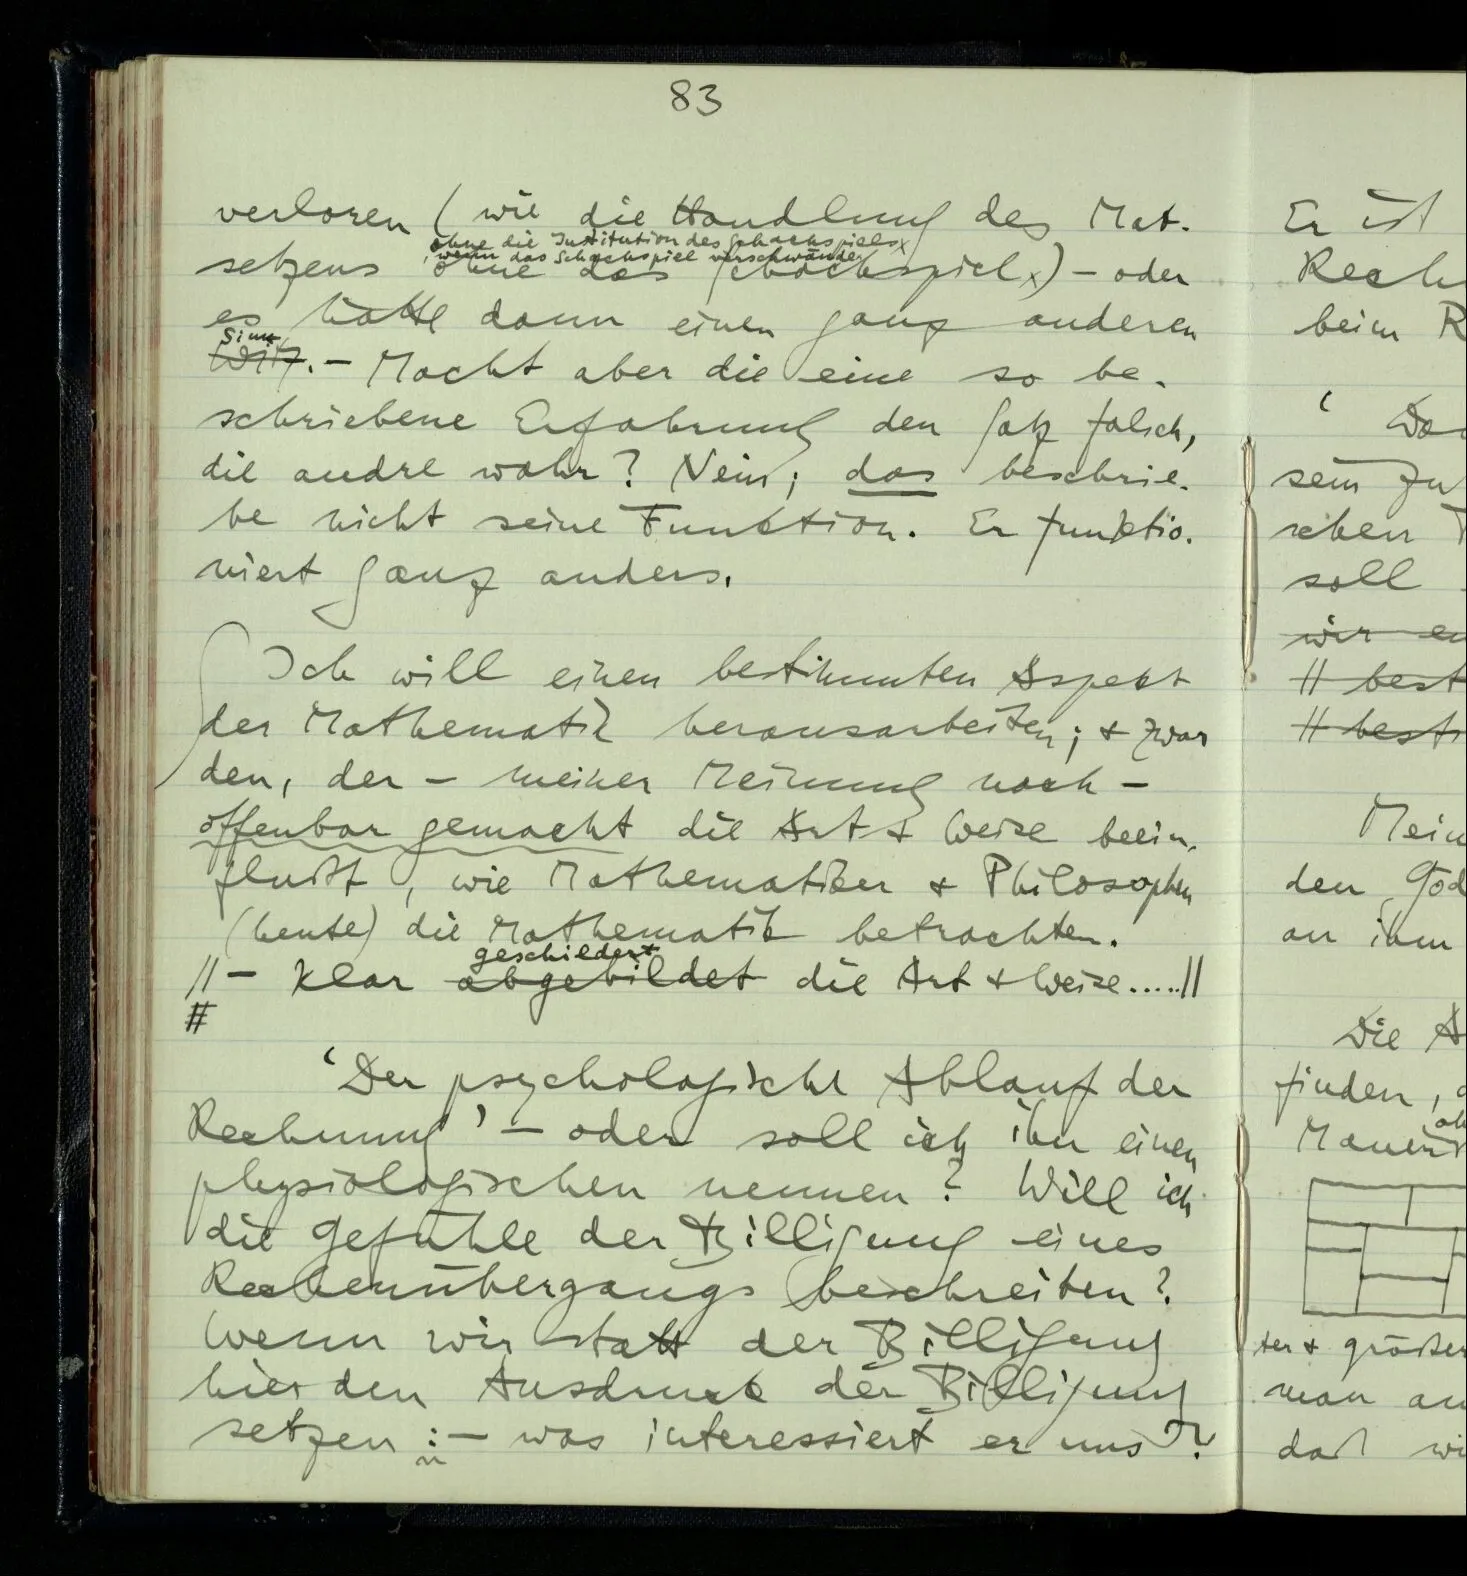 83
verloren (wie die Handlung des Mat-
ohne die Institution des Schachspiels x
, wenn das Schachspiel verschwände
setzens ohne das Schachspiel x) – oder
es hätte dann einen ganz anderen
Sinn
Witz. – Macht aber die eine so be-
schriebene Erfahrung den Satz falsch,
die andre wahr? Nein; das beschrie-
be nicht seine Funktion. Er funktio-
niert ganz anders.
Ich will einen bestimmten Aspekt
der Mathematik herausarbeiten; & zwar
den, der – meiner Meinung nach –
offenbar gemacht die Art & Weise beein-
flußt, wie Mathematiker & Philosophen
(heute) die Mathematik betrachten.
// – klar
geschildert
abgebildet die Art & Weise.....//
#
‘Der psychologische Ablauf der
Rechnung’ – oder soll ich ihn einen
physiologischen nennen? Will ich
die Gefühle der Billigung eines
Rechenübergangs beschreiben?
Wenn wir statt der Billigung
hier den Ausdruck der Billigung
setzen :– was interessiert er uns?
Er ist
Rech
beim R
‘ Da
sein zu
schen
soll
wir
// best
// best
Mein
den Göd
an ihm
Die A
finden,
Mauer
ter & größer
man an
daß wi